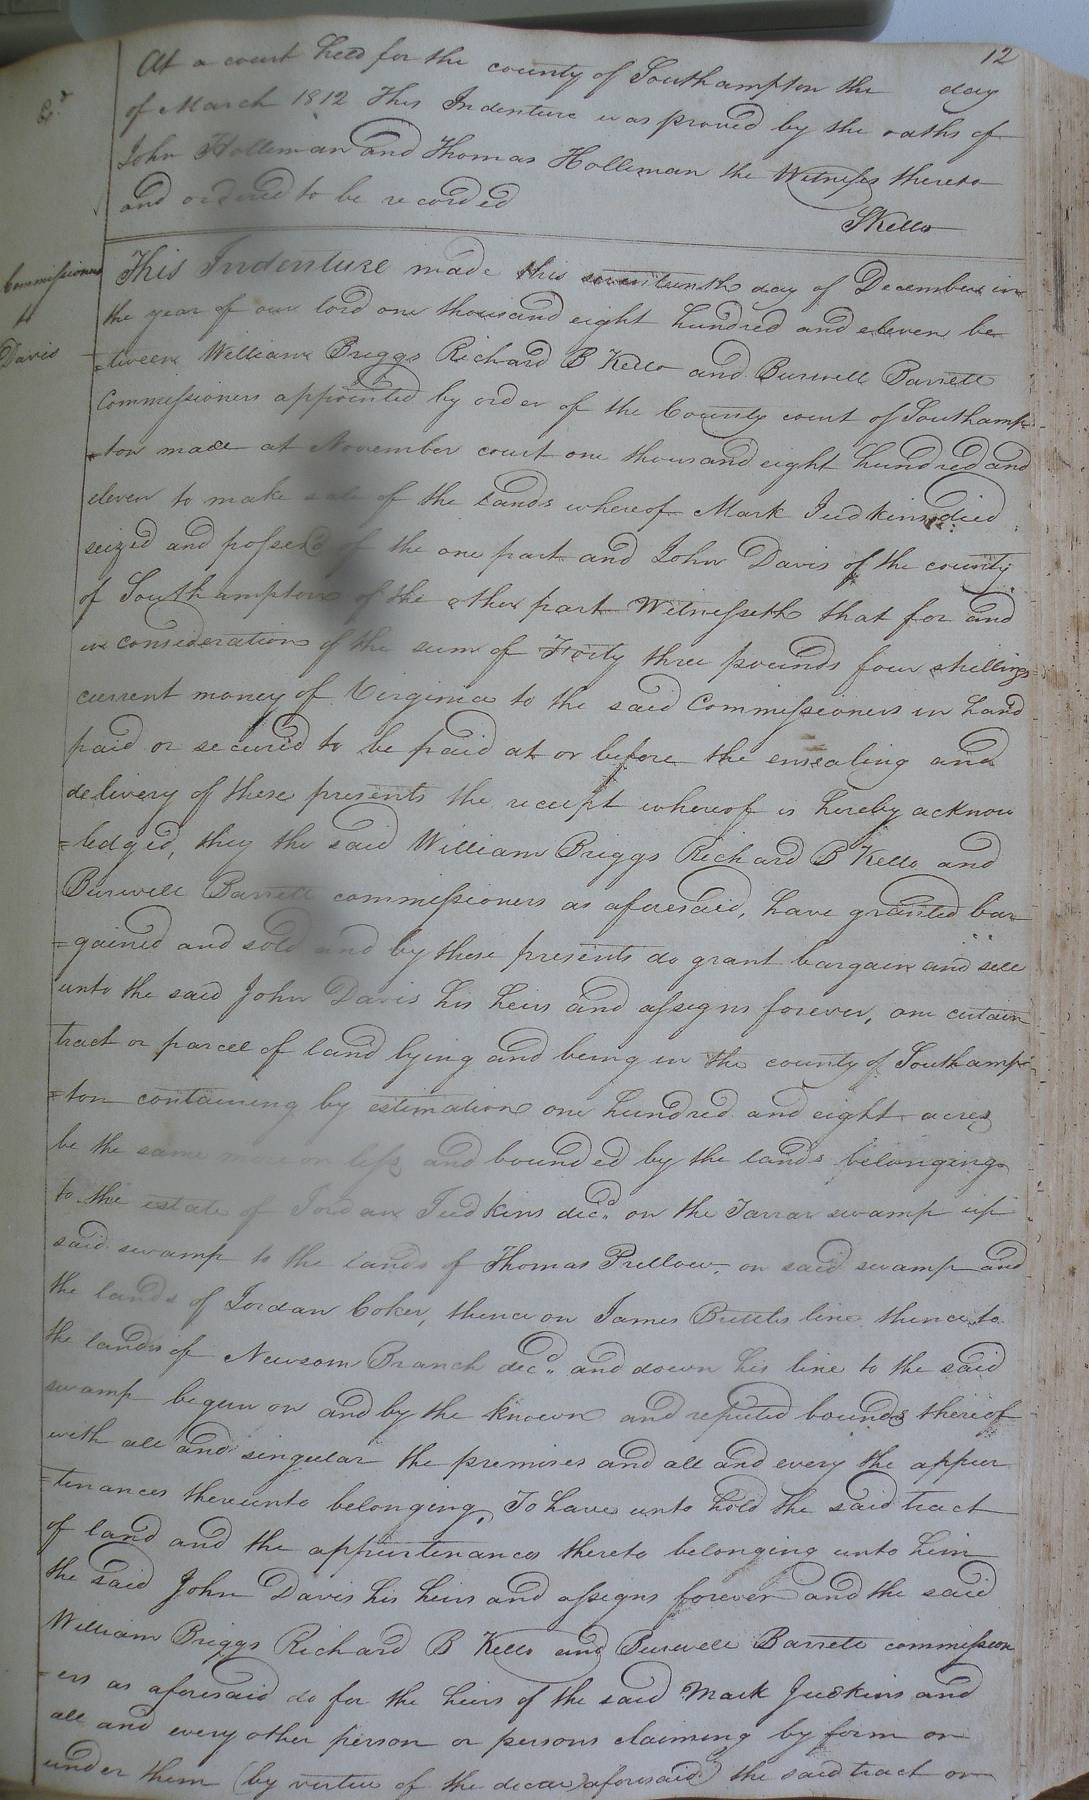 12
At a court held for the county of Southampton the day
of March 1812 This Indenture was proved by the oaths of
John Holleman and Thomas Holleman the Witnesses thereto
and ordered to be recorded
SKello
Commissioners
to
Davis
This Indenture made this seventeenth day of December in
the year of our lord one thousand eight hundred and eleven be
=tween William Briggs Richard B Kello and Burwell Barrett
Commissioners appointed by order of the County court of Southamp
=ton made at November court one thousand eight hundred and
eleven to make sale of the lands whereof Mark Judkins died
seized and possess'd of the one part and John Davis of the county
of Southampton of the other part Witnesseth that for and
in consideration of the sum of Forty three pounds four shillings
current money of Virginia to the said Commissioners in hand
paid or secured to be paid at or before the ensealing and
delivery of these presents the receipt whereof is hereby acknow
=ledged, they the said William Briggs Richard B Kello and
Burwell Barrett commissioners as aforesaid, have granted bar
=gained and sold and by these presents do grant bargain and sell
unto the said John Davis his heirs and assigns forever, one certain
tract or parcel of land lying and being in the county of Southamp
=ton containing by estimation one hundred and eight acres
be the same more or less and bounded by the lands belonging
to the estate of Jordan Judkins decd. on the Tarrar swamp up
said swamp to the lands of Thomas Prellow, on said swamp and
the lands of Jordan Coker, thence on James Buttls line thence to
the lands of Newsom Branch decd. and down his line to the said
swamp begun on and by the known and reputed bounds thereof
with all and singular the premises and all and every the appur
=tenances thereunto belonging, To have unto hold the said tract
of land and the appurtenances thereto belonging unto him
the said John Davis his heirs and assigns forever and the said
William Briggs Richard B Kello and Burwell Barrett commission
=ers as aforesaid do for the heirs of the said Mark Judkins and
all and every other person or persons claiming by form or
under them (by virtue of the decree aforesaid) the said tract or